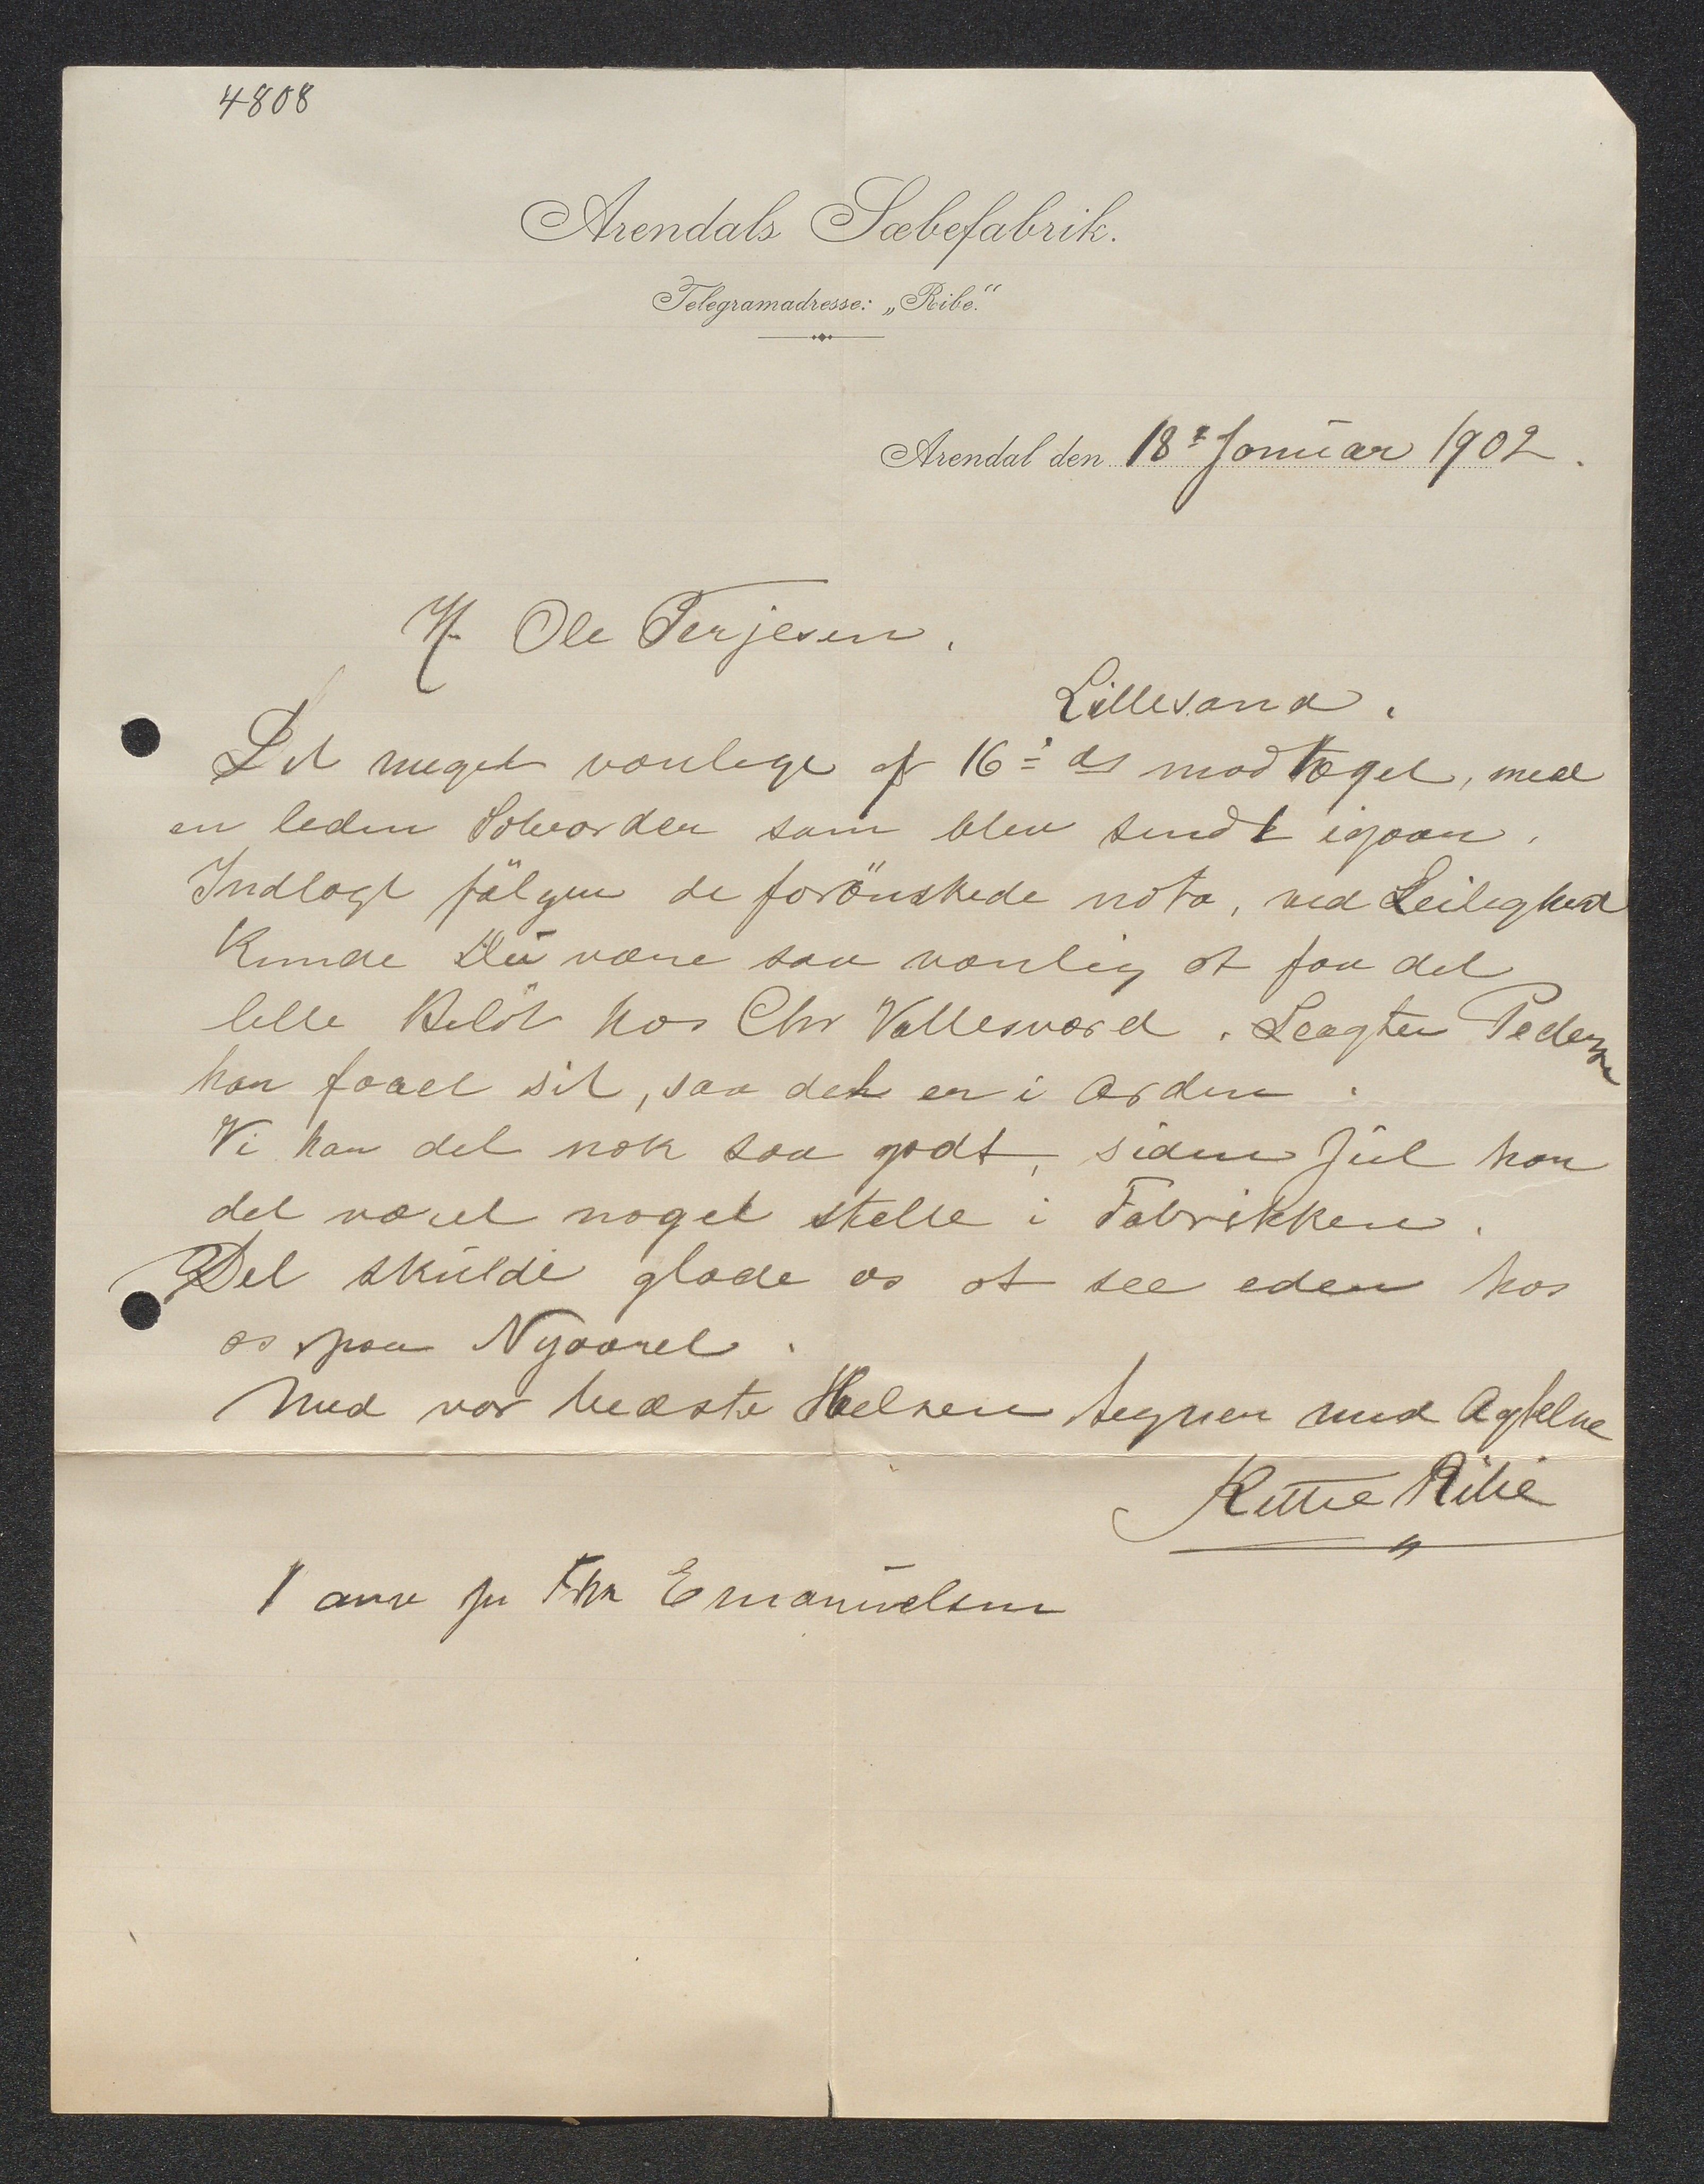 4808
Arendals Sæbefabrik.
Telegramadresse: „Ribe."
Arendal den 18de Januar 1902.
Hr Ole Terjesen.
Lillesand.
Dit meget vænlige af 16de ds modtoget, med
en leden som blev sendt igaar.
Indlagt fölger de forönskede nota, ved Leileghed
Kunde Du være saa vænlig at faa det
lille Belöb hos Chr Vallesværd. Slagter Pedersen
har faaet sit, saa det er i Orden.
Vi har det nok saa godt, siden Jul har
det været noget stelle i Fabrikken.
Det skulde glæde os at see eder hos
os paa Nyaaret.
Med vor bedste Helsen tegner med Agtelse
Kittel Ribe
1 per Emanuelsen